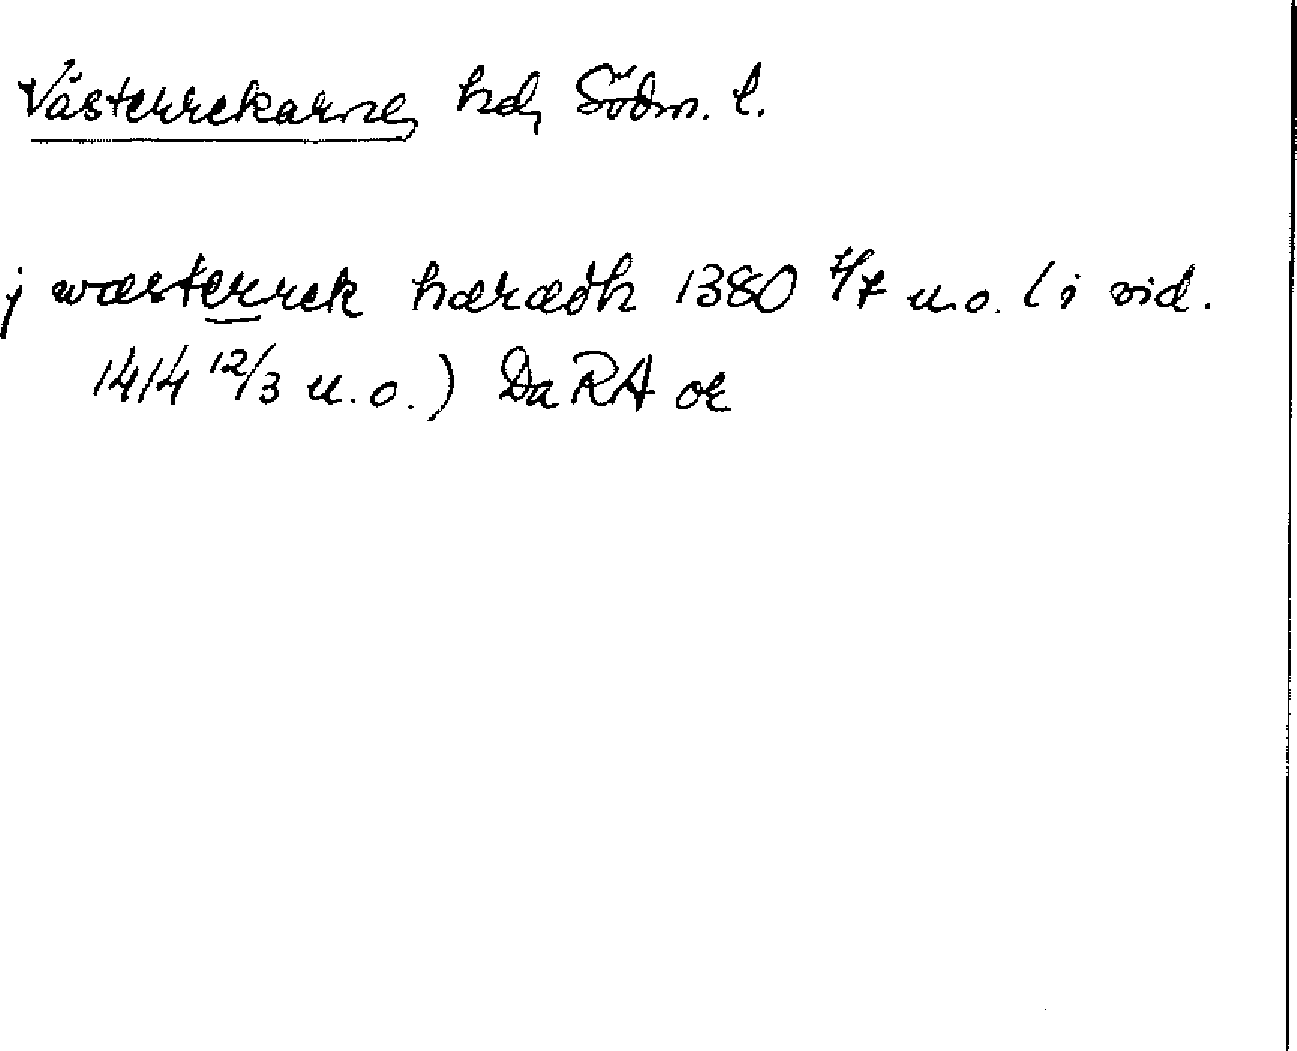 Västerrekarne, hd, Södm. l.
j wæsterrek hærædh 1380 7/7 u.o. (i vid.
1414 12/3 u.o.) Da RA or